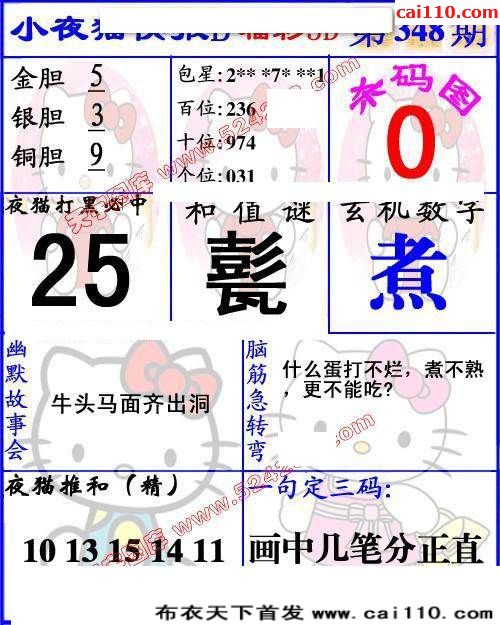 cai110.com
小夜猫快报D 福彩3D 第348期
金胆 5
银胆 3
铜胆 9
包星:2** *7* **1
百位:236
十位:974
个位:031
杀码图
0
夜猫打黑必中
25
和值谜
髱
玄机数字
煮
幽默故事会
牛头马面齐出洞
脑筋急转弯
什么蛋打不烂，煮不熟
，更不能吃?
夜猫推和（精）
10 13 15 14 11
一句定三码:
画中几笔分正直
天宇图库 www.5242
布衣天下首发 www.cai110.com